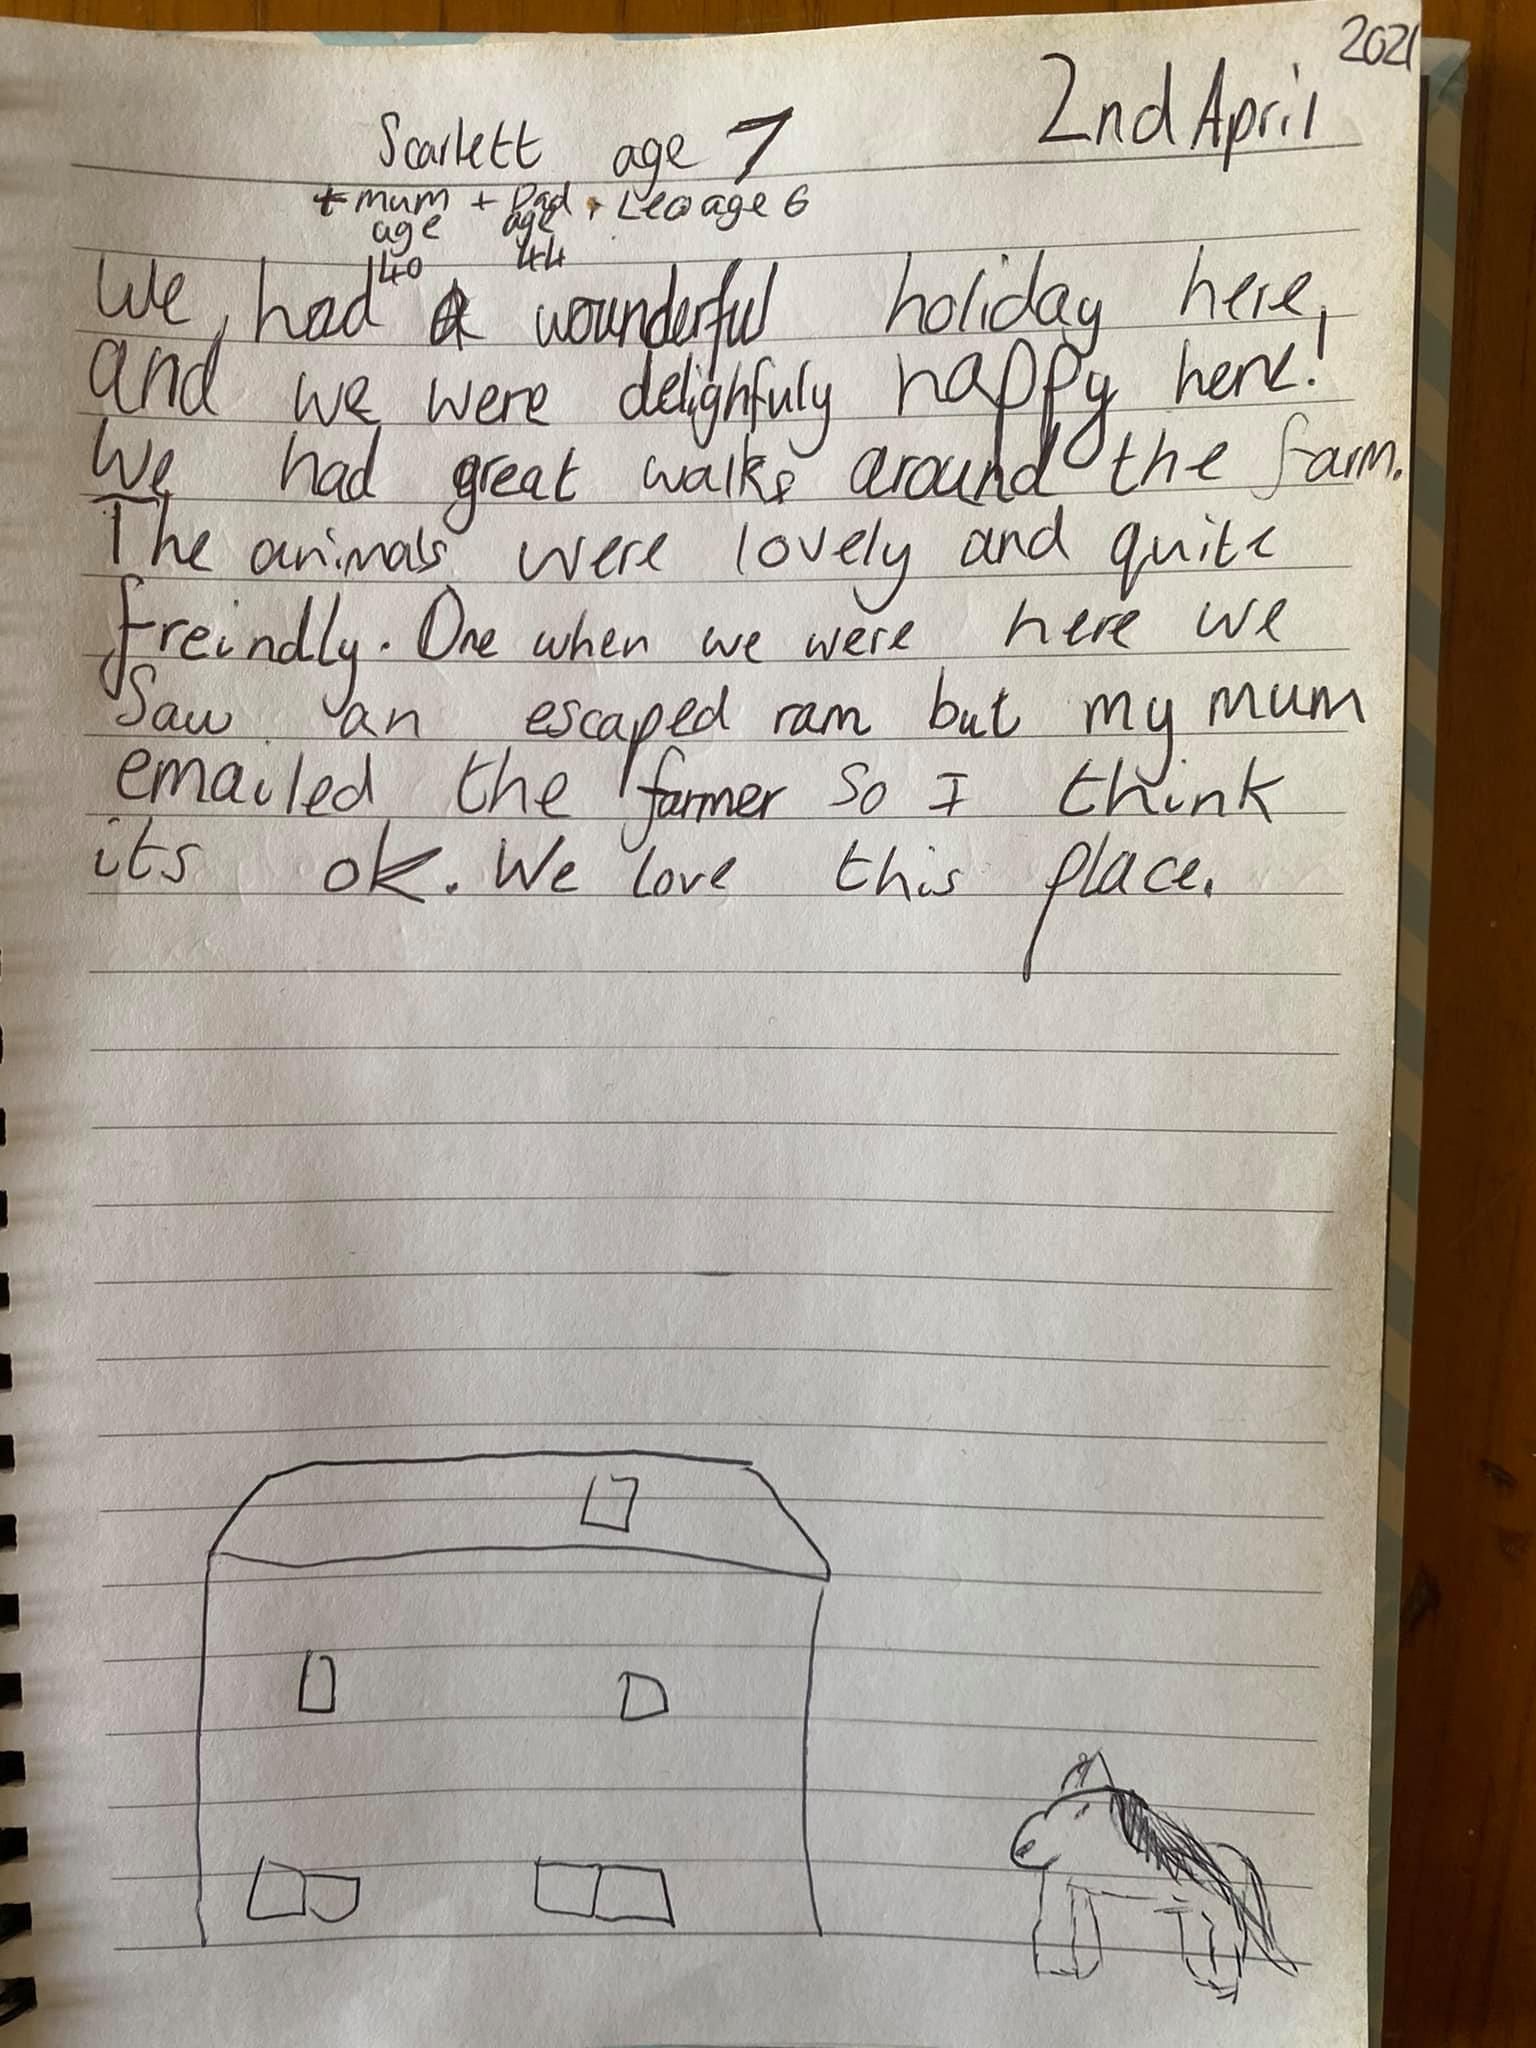 2021
2nd April
Scarlett age 7
+ mum + Dad + Leo age 6
age age
40 44
We had a wounderful holiday here,
and we were delighfuly happy here!
We had great walks around the farm.
The animals were lovely and quite
freindly. One when we were here we
Saw an escaped ram but my mum
emailed the farmer so I think
its ok. We love this place.